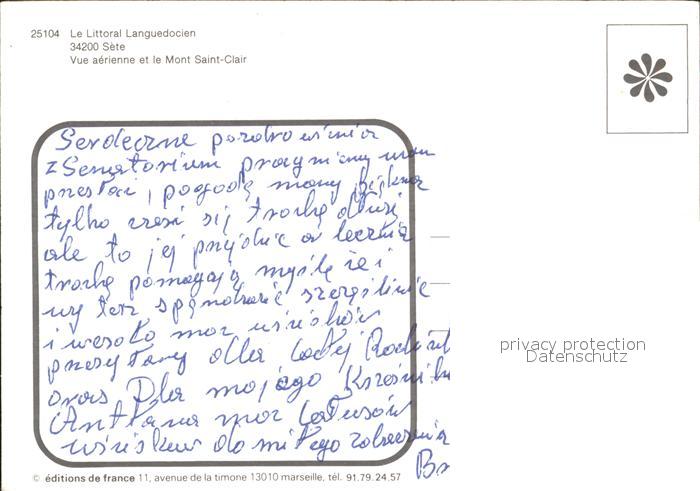 25104 Le Littoral Languedocien
34200 Sète
Vue aérienne et le Mont Saint-Clair
Serdeczne pozdrowienia
z Senatorium pragniemy wam
przesłać, pogodę mamy piękną
tylko
ale to jej
trochę pomagają myślę że i
wy też szczęśliwie
i wesoło moc uścisków
przesyłamy dla całej
oraz Dla mojego
Antka moc całusów
uścisków do miłego zobaczenia
privacy protection
Datenschutz
© éditions de france 11, avenue de la timone 13010 marseille, tél. 91.79.24.57